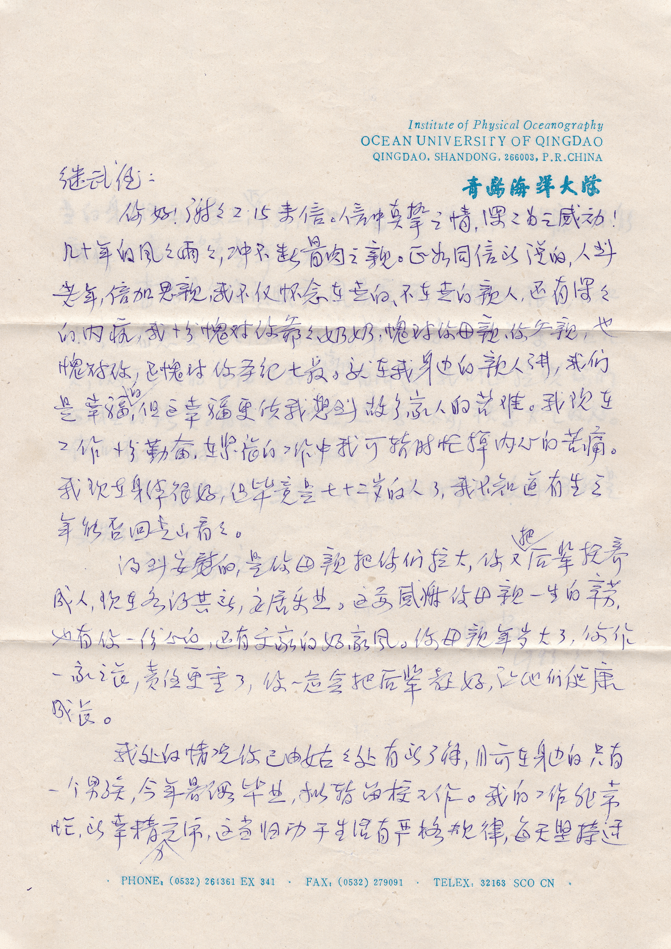 Institute of Physical Oceanography
OCEAN UNIVERSITY OF QINGDAO
QINGDAO, SHANDONG, 266003, P.R.CHINA
青岛海洋大学
继武侄：
你好！谢之 来信。信中真挚之情，深之为之感动！
几十年的风之雨之，冲不断骨肉之亲。正如同信所说的，人到
老年，倍加思亲，我不仅怀念在世的、不在世的亲人，还有深之
的内疚，我十分愧对你爷之奶奶，愧对你母亲、你父亲，也
愧对你，已愧对你 。就在我身边的亲人讲，我们
是幸福的，但这幸福更使我想到故乡家人的苦难。我现在
工作十分勤奋，在紧张的工作中我可暂时忙掉内心的苦痛。
我现在身体很好，但毕竟是七十二岁的人了，我不知道有生之
年能否回老山看之。
得到安慰的，是你母亲把你们拉大，你又把后辈抚养
成人，现在各得其所，安居乐业。这要感谢你母亲一生的辛劳，
也有你一份 ，还有文家的好家风。你母亲年岁大了，你作
一家之长，责任更重了，你一定会把后辈教好，让他们健康
成长。
我处的情况你已由姑之处有所了解，目前在身边的只有
一个男孩，今年暑假毕业，拟暂留校工作。我的工作非常
忙，所幸精力充沛，这当归功于生活有严格规律，每天坚持
PHONE: (0532) 261361 EX 341 · FAX: (0532) 279091 · TELEX: 32163 SCO CN